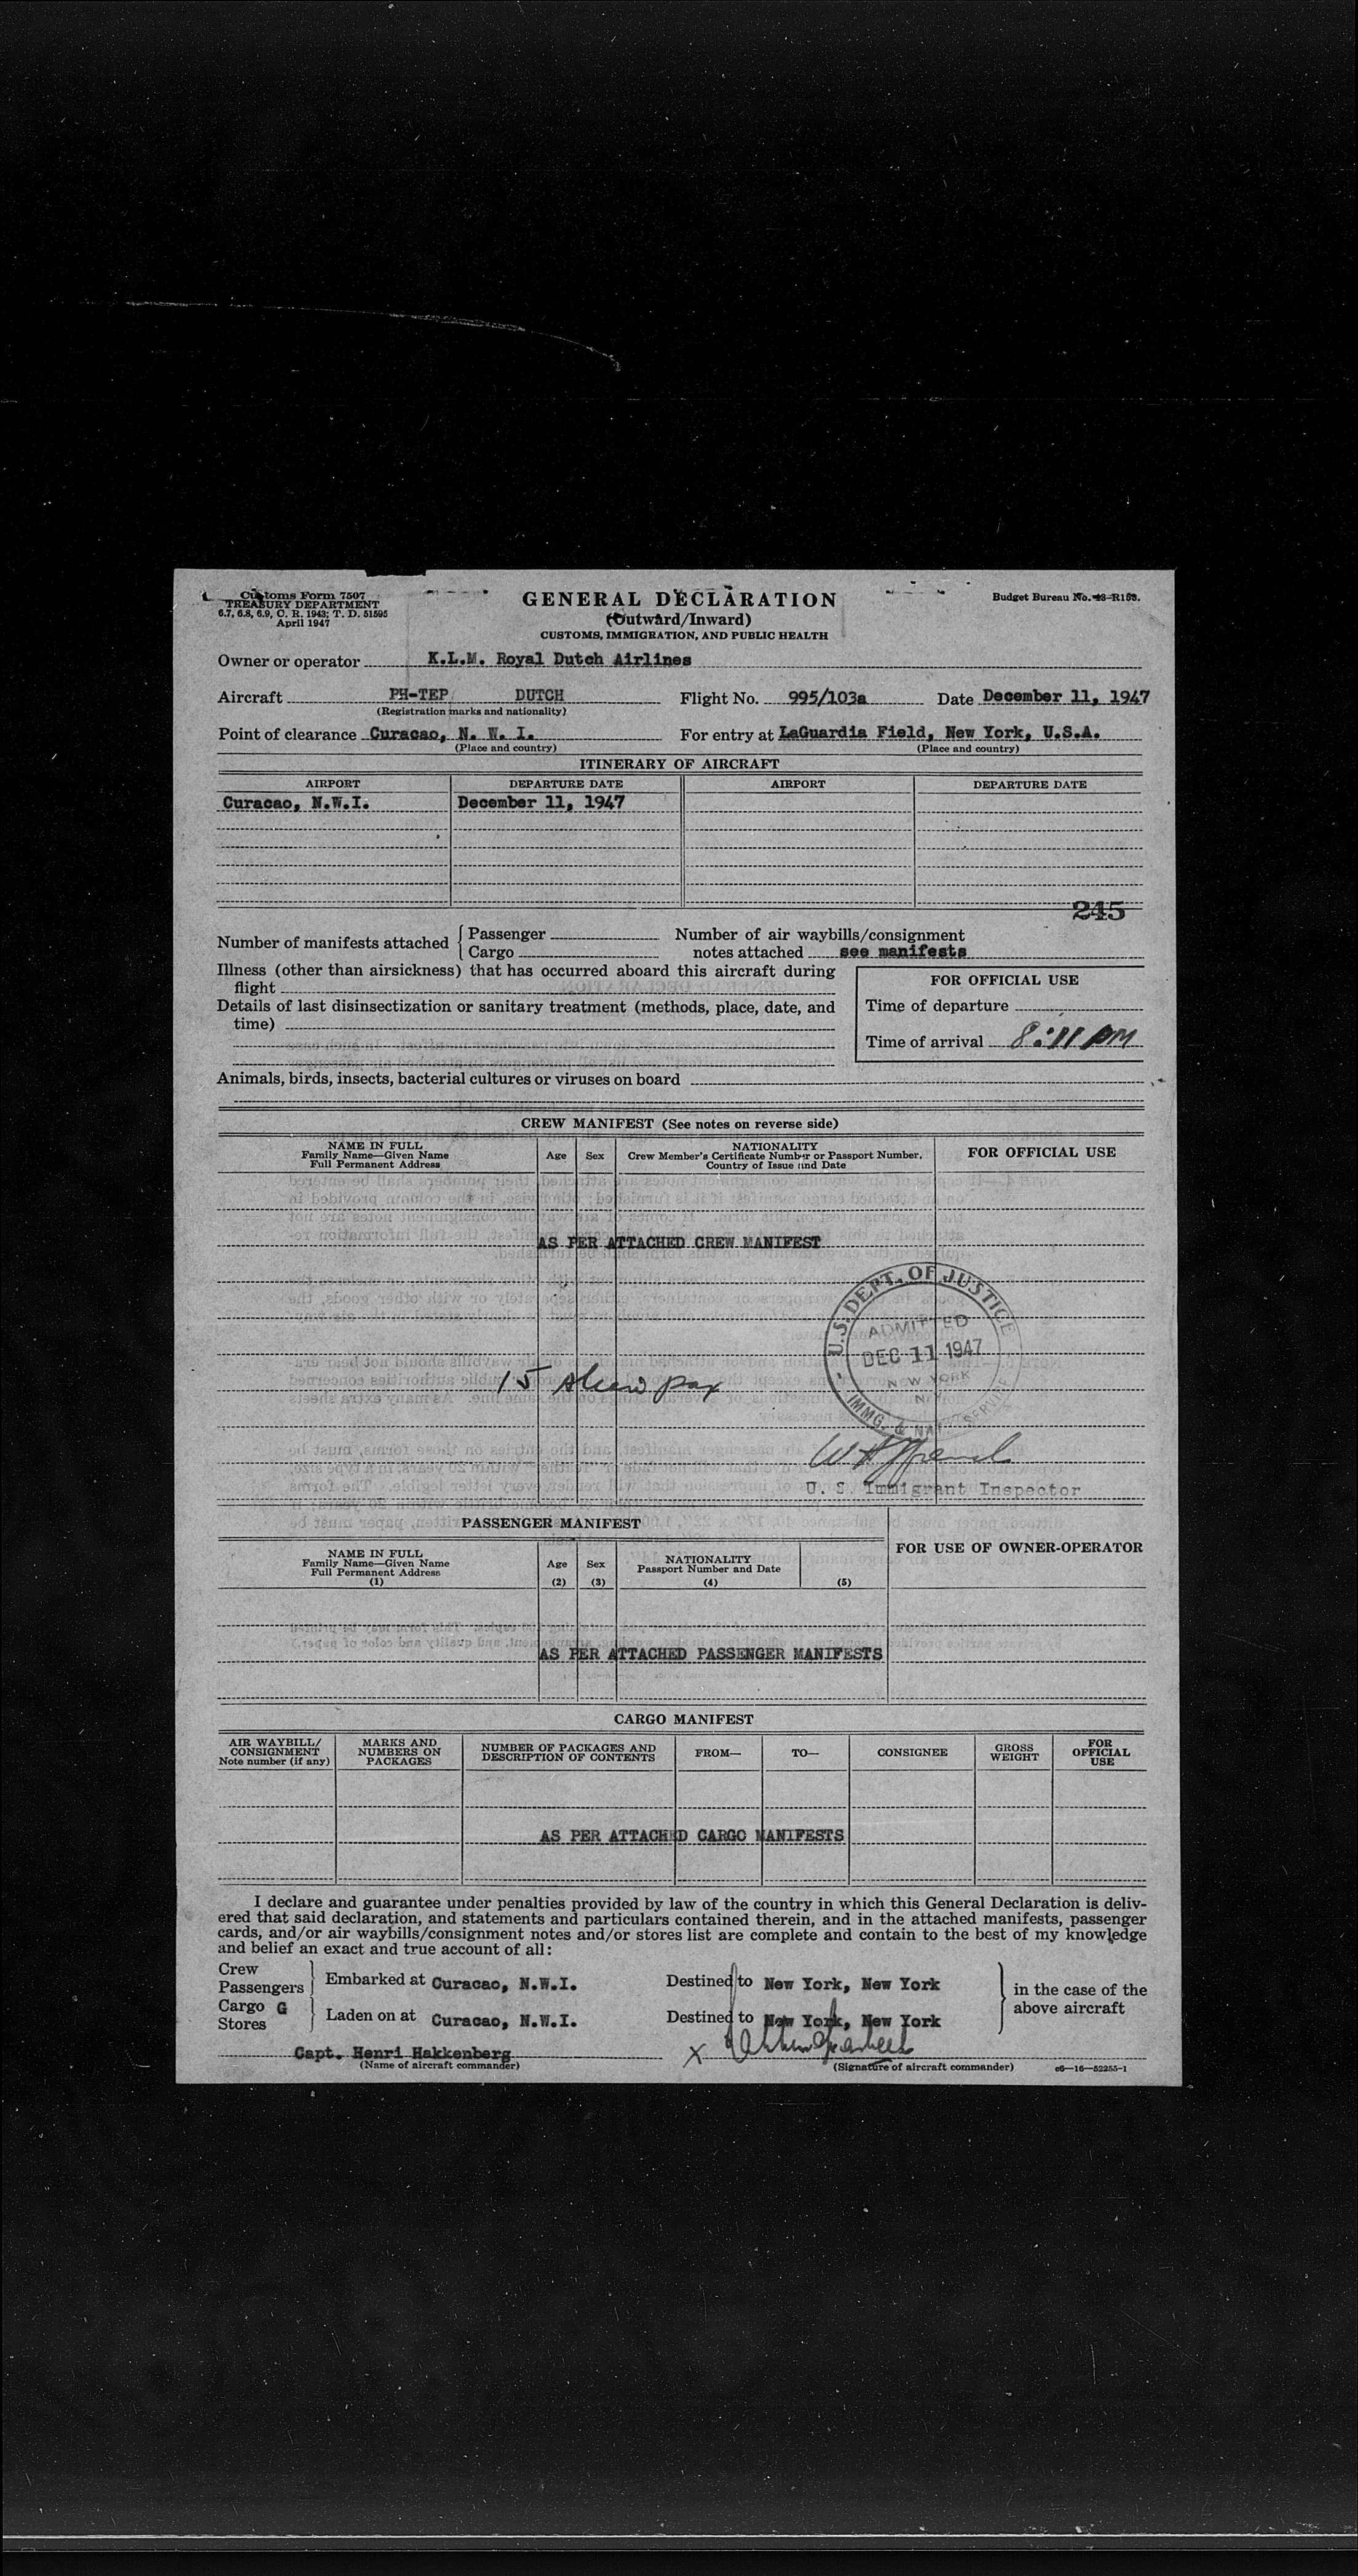 Customs Form 7507
TREASURY DEPARTMENT
6.7, 6.8, 6.9, C. R. 1943; T. D. 51595
April 1947
GENERAL DECLARATION
(Outward/Inward)
CUSTOMS, IMMIGRATION, AND PUBLIC HEALTH
Budget Bureau No.
Owner or operator K.L.M. Royal Dutch Airlines
Aircraft PH-TEP DUTCH Flight No. 995/103a Date December 11, 1947
(Registration marks and nationality)
Point of clearance Curacao, N. W. I. For entry at LaGuardia Field, New York, U.S.A.
(Place and country) (Place and country)
ITINERARY OF AIRCRAFT
AIRPORT DEPARTURE DATE AIRPORT DEPARTURE DATE
Curacao, N.W.I. December 11, 1947
245
Number of manifests attached Passenger
Cargo
Number of air waybills/consignment
notes attached see manifests
Illness (other than airsickness) that has occurred aboard this aircraft during
flight
Details of last disinsectization or sanitary treatment (methods, place, date, and
time)
FOR OFFICIAL USE
Time of departure
Time of arrival 8:11 PM
Animals, birds, insects, bacterial cultures or viruses on board
CREW MANIFEST (See notes on reverse side)
NAME IN FULL
Family Name—Given Name
Full Permanent Address
Age
Sex
NATIONALITY
Crew Member's Certificate Number or Passport Number,
Country of Issue and Date
FOR OFFICIAL USE
AS PER ATTACHED CREW MANIFEST
U.S. DEPT. OF JUSTICE
ADMITTED
DEC 11 1947
NEW YORK
N.Y.
IMMG. & NAT. SERVICE
15 Alien pax
U. S. Immigrant Inspector
PASSENGER MANIFEST
FOR USE OF OWNER-OPERATOR
NAME IN FULL
Family Name—Given Name
Full Permanent Address
(1)
Age
(2)
Sex
(3)
NATIONALITY
Passport Number and Date
(4)
(5)
AS PER ATTACHED PASSENGER MANIFESTS
CARGO MANIFEST
AIR WAYBILL/
CONSIGNMENT
Note number (if any)
MARKS AND
NUMBERS ON
PACKAGES
NUMBER OF PACKAGES AND
DESCRIPTION OF CONTENTS
FROM—
TO—
CONSIGNEE
GROSS
WEIGHT
FOR
OFFICIAL
USE
AS PER ATTACHED CARGO MANIFESTS
I declare and guarantee under penalties provided by law of the country in which this General Declaration is deliv-
ered that said declaration, and statements and particulars contained therein, and in the attached manifests, passenger
cards, and/or air waybills/consignment notes and/or stores list are complete and contain to the best of my knowledge
and belief an exact and true account of all:
Crew
Passengers
Embarked at Curacao, N.W.I. Destined to New York, New York
Cargo G
Stores
Laden on at Curacao, N.W.I. Destined to New York, New York
in the case of the
above aircraft
Capt. Henri Hakkenberg
(Name of aircraft commander)
X
(Signature of aircraft commander)
c6—16—52255-1